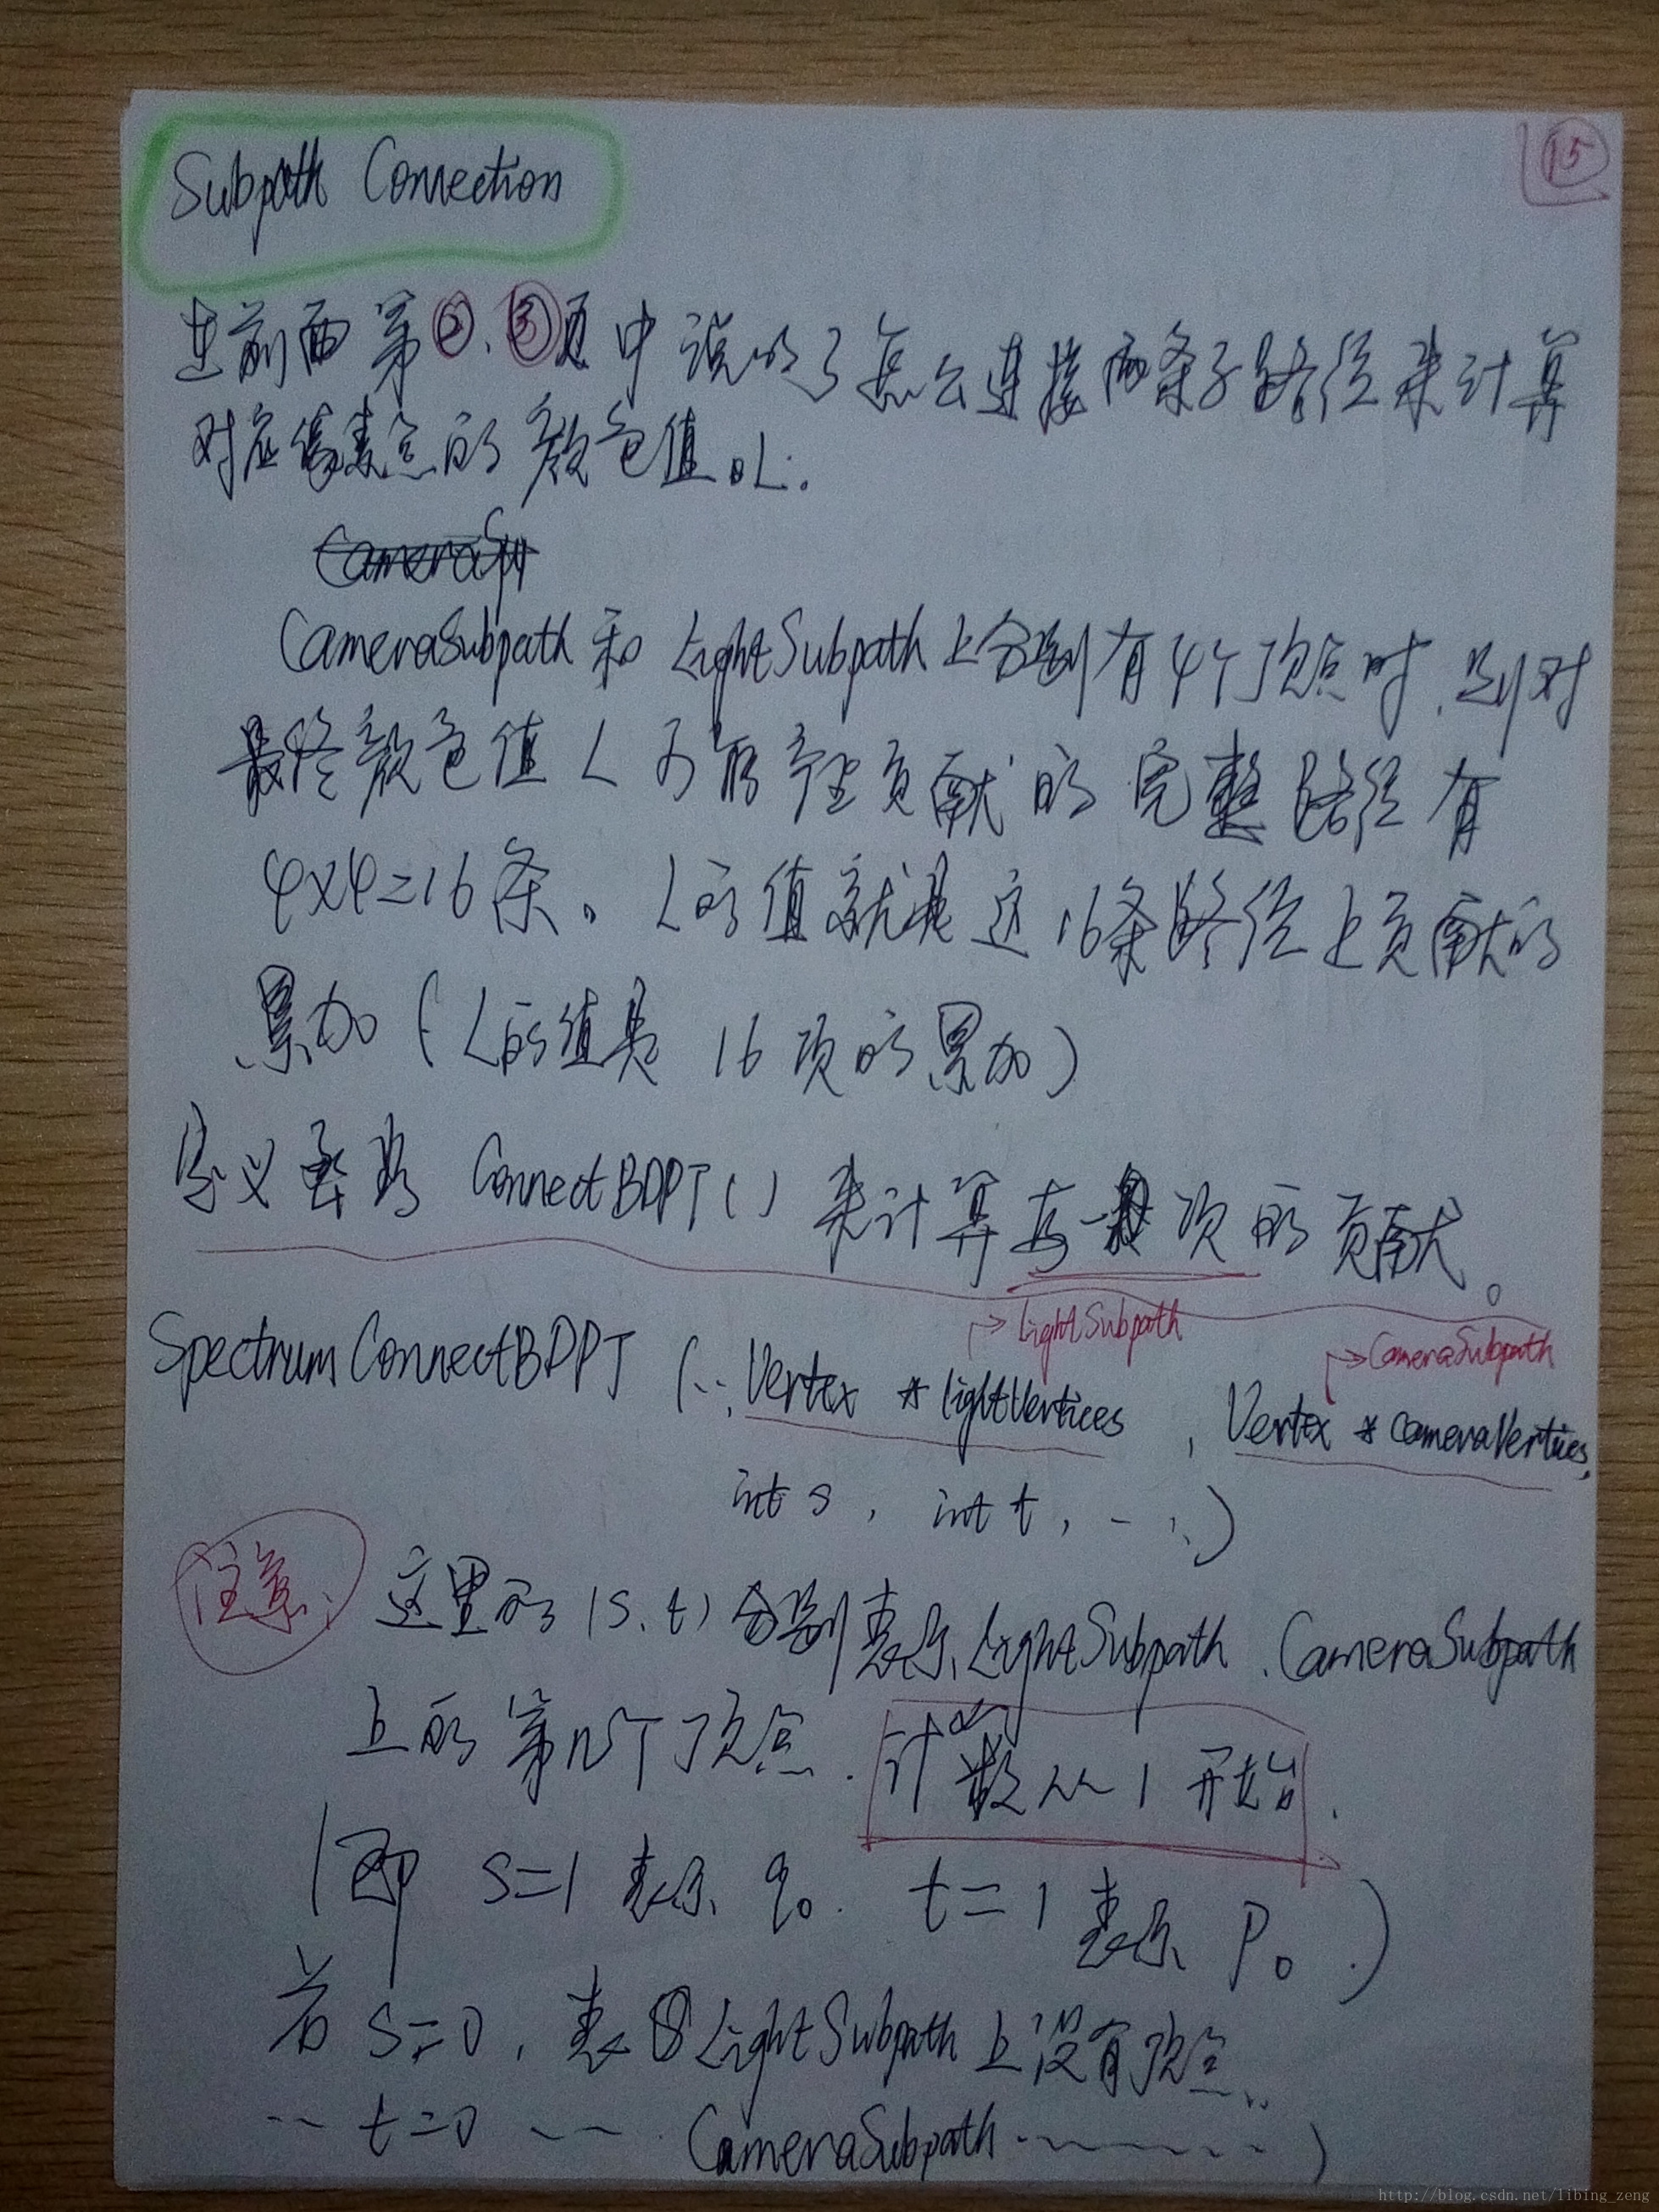 Subpath Connection
15
在前面第②、③页中说明了怎么连接两条子路径来计算
对应像素点的颜色值L.
CameraSubpath 和 LightSubpath 上分别有4个顶点时, 则对
最终颜色值 L 可能产生贡献的完整路径有
4×4=16条。L的值就是这16条路径上贡献的
累加 (L的值是 16 项的累加)
定义函数 ConnectBDPT() 来计算每一项的贡献。
→ LightSubpath
→ CameraSubpath
Spectrum ConnectBDPT (…, Vertex *lightVertices , Vertex *cameraVertices,
int s, int t, …)
注意: 这里的 (s, t) 分别表示 LightSubpath、CameraSubpath
上的第几个顶点. 计数从 1 开始.
(即 s=1 表示 q₀. t=1 表示 p₀.)
若 s=0, 表示 LightSubpath 上没有顶点.
… t=0 … CameraSubpath … )
http://blog.csdn.net/libing_zeng